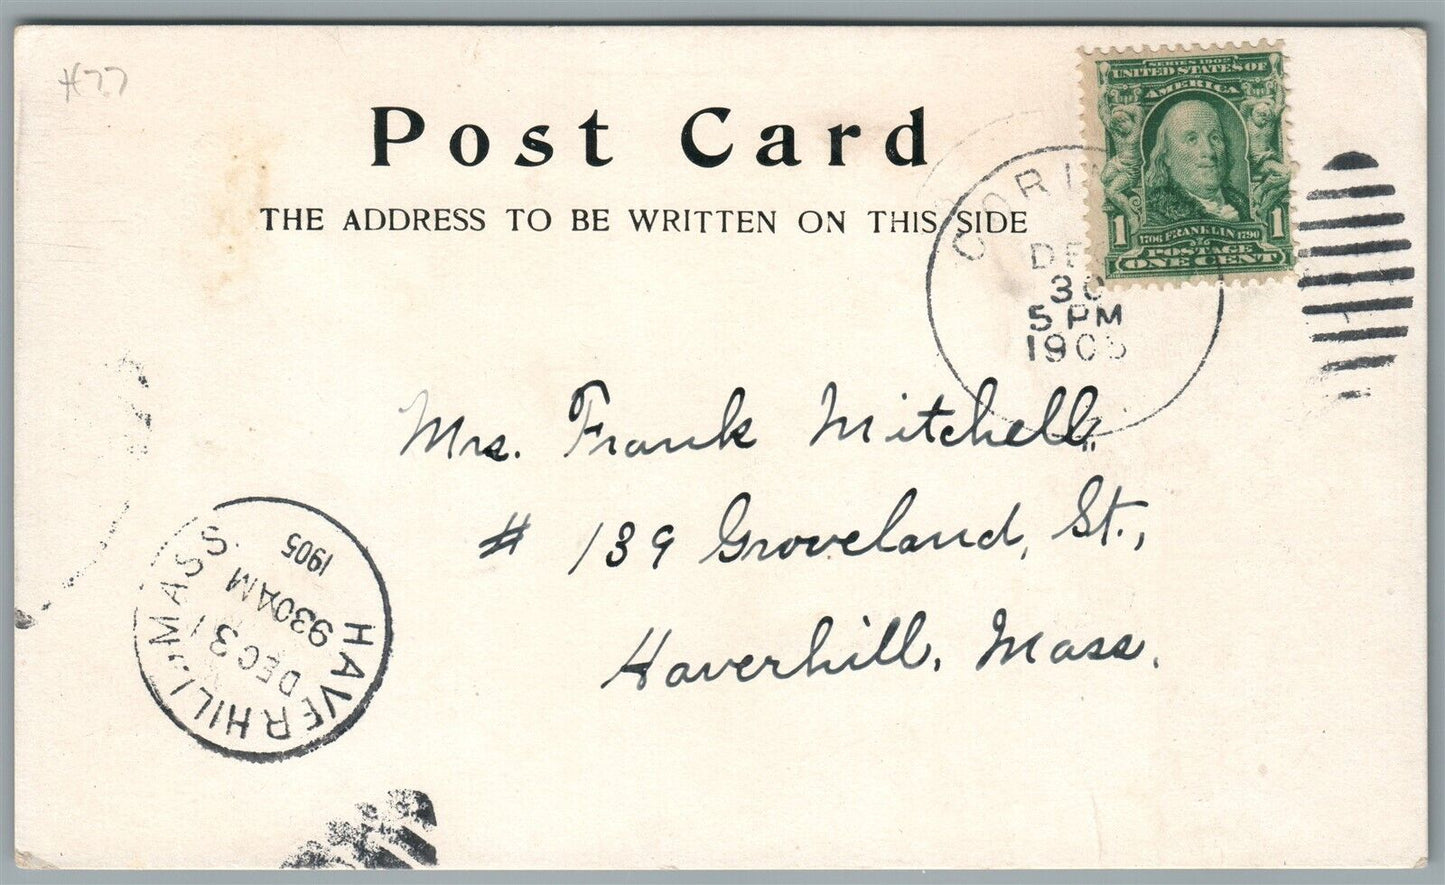 H77
Post Card
THE ADDRESS TO BE WRITTEN ON THIS SIDE
SERIES 1902
UNITED STATES OF
AMERICA
1 1
1706 FRANKLIN 1790
POSTAGE
ONE CENT
30
5 PM
1905
Mrs. Frank Mitchell,
# 139 Groveland, St.,
Haverhill, Mass.
HAVERHILL, MASS.
DEC 31
930AM
1905